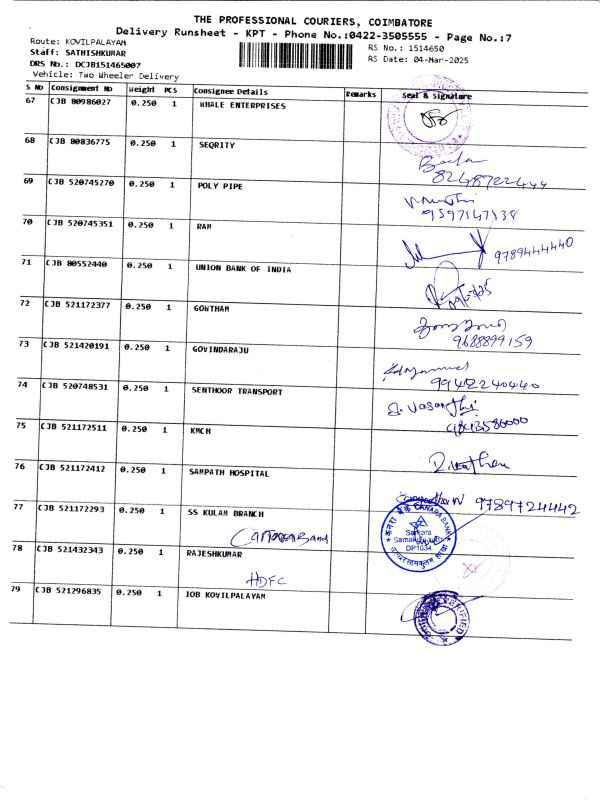 THE PROFESSIONAL COURIERS, COIMBATORE
Delivery Runsheet - KPT - Phone No.:0422-3505555 - Page No.:7
Route: KOVILPALAYAM
RS No.: 1514650
Staff: SATHISHKUMAR
RS Date: 04-Mar-2025
DRS No.: DCJB151465007
Vehicle: Two Wheeler Delivery
S No Consignment No Weight PCS Consignee Details Remarks Seal & Signature
67 CJB 80986027 0.250 1 WHALE ENTERPRISES
68 CJB 80836775 0.250 1 SEQRITY
8248722444
69 CJB 520745270 0.250 1 POLY PIPE
9597147138
70 CJB 520745351 0.250 1 RAM
9789444440
71 CJB 80552440 0.250 1 UNION BANK OF INDIA
72 CJB 521172377 0.250 1 GOWTHAM
9688899159
73 CJB 521420191 0.250 1 GOVINDARAJU
9942240440
74 CJB 520748531 0.250 1 SENTHOOR TRANSPORT
S. Vasanthi
9843580000
75 CJB 521172511 0.250 1 KMCH
76 CJB 521172412 0.250 1 SAMPATH HOSPITAL
9789724442
77 CJB 521172293 0.250 1 SS KULAM BRANCH
Canara Bank
CANARA BANK
केनरा बैंक
DP1034
78 CJB 521432343 0.250 1 RAJESHKUMAR
HDFC
79 CJB 521296835 0.250 1 IOB KOVILPALAYAM